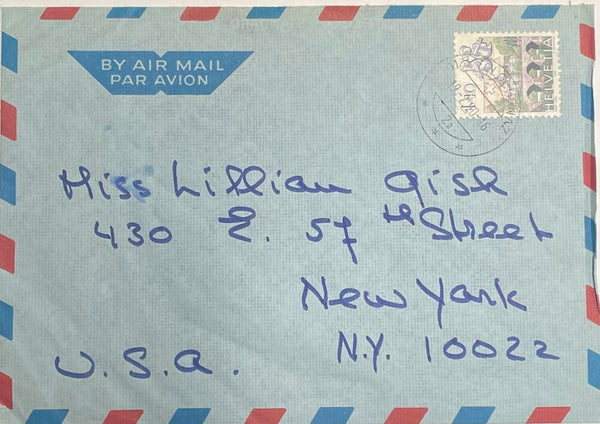 BY AIR MAIL
PAR AVION
HELVETIA
Miss Lillian Gish
430 E. 57th Street
New York
N.Y. 10022
U.S.A.